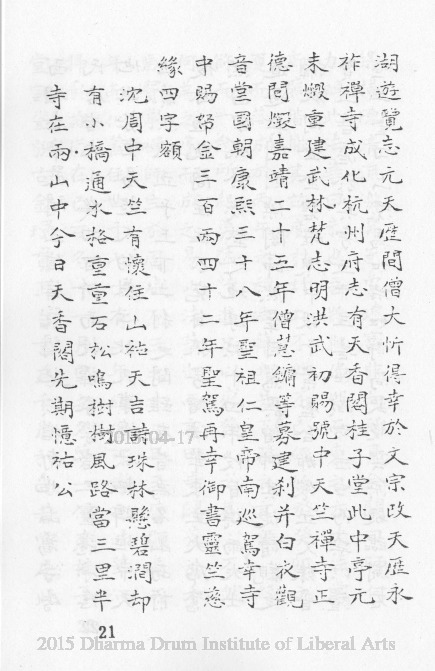 湖遊覽志元天厯間僧大忻得幸於文宗改天厯永
祚禪寺成化杭州府志有天香閣桂子堂此中亭元
末燬重建武林梵志明洪武初賜號中天竺禪寺正
德間燬嘉靖二十五年僧慧鏞等募建刹并白衣觀
音堂國朝康熙三十八年聖祖仁皇帝南巡駕幸寺
中賜帑金三百兩四十二年聖駕再幸御書靈竺慈
緣四字額
沈周中天竺有懷住山祐天吉詩珠林懸碧澗却
有小橋通水格重重石松鳴樹樹風路當三里半
寺在兩山中今日天香閣先期憶祐公
2015-04-17
21
2015 Dharma Drum Institute of Liberal Arts